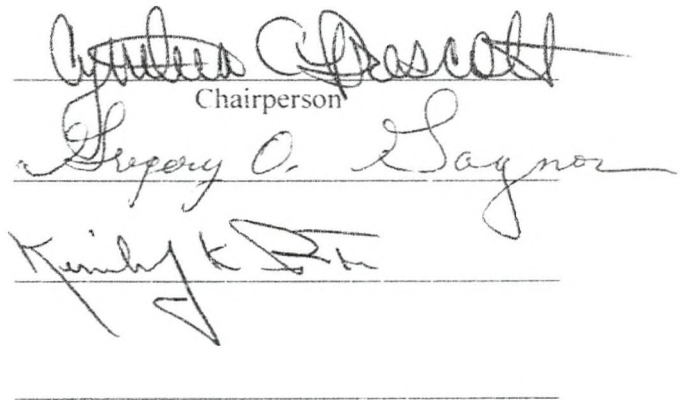 Cynthia C Prescott
Chairperson
Gregory O. Gaynor
K